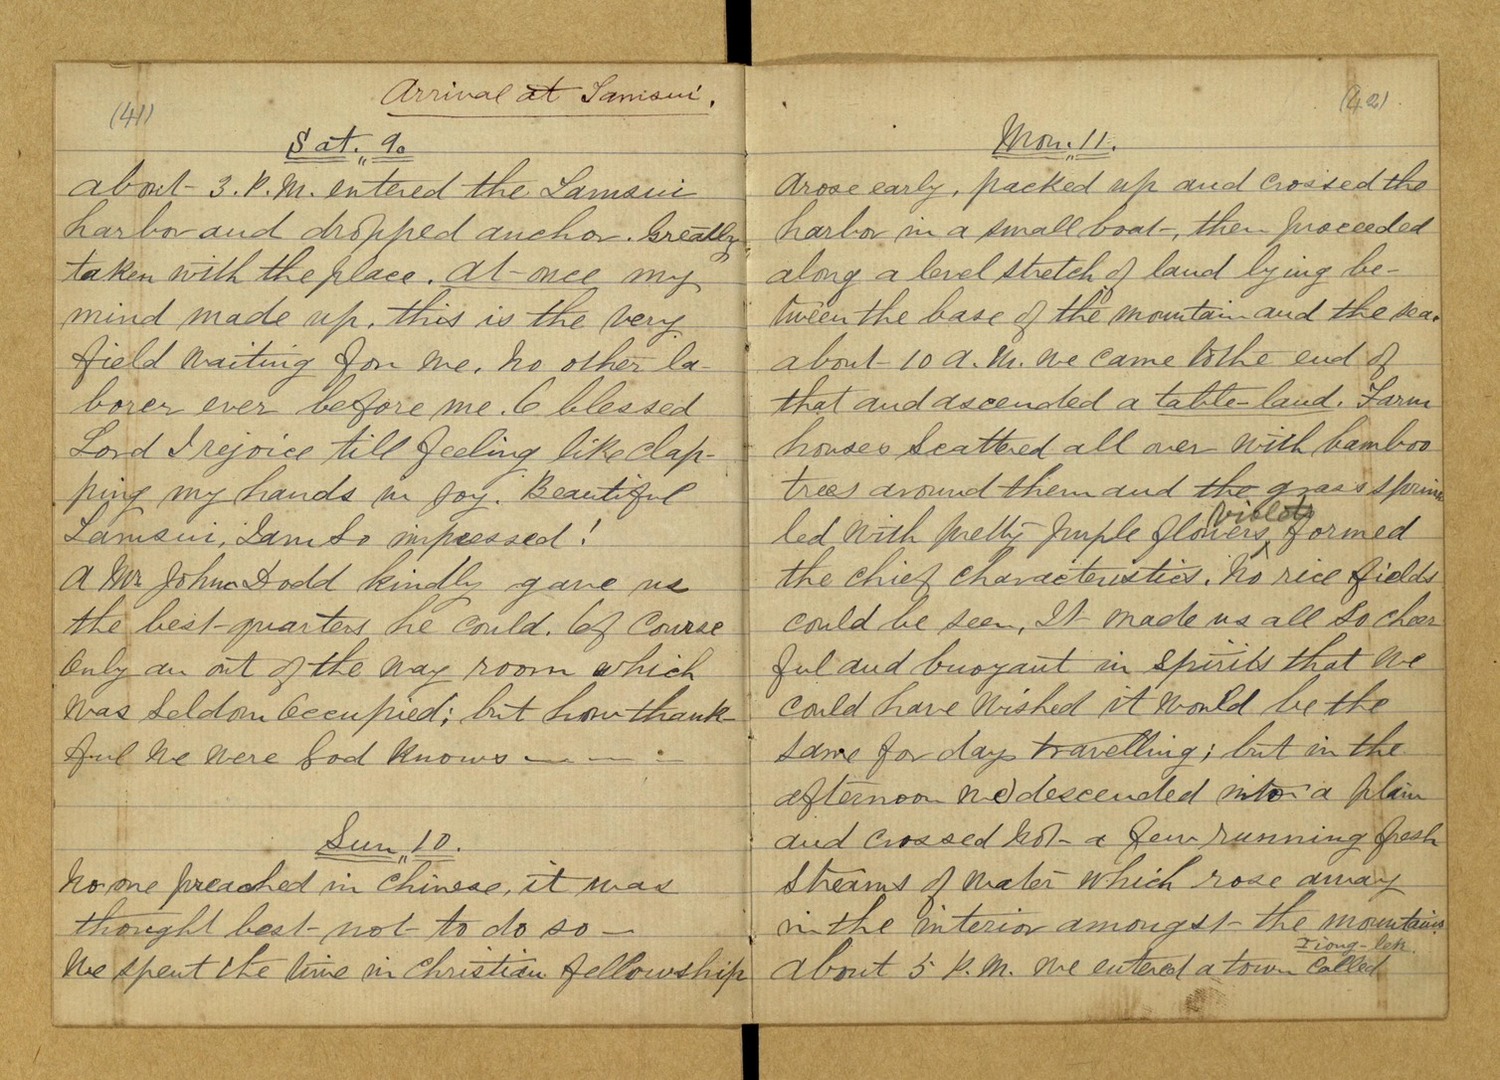 Arrival at Tamsui.
(41)
Sat. 9.
about 3. P. M. entered the Tamsui
harbor and dropped anchor. Greatly
taken with the place. At once my
mind made up, this is the very
field waiting for me. No other la-
borer ever before me. O blessed
Lord I rejoice till feeling like clap-
ping my hands in joy. Beautiful
Tamsui, I am so impressed!
A Mr. John Dodd kindly gave us
the best quarters he could. Of course
only an out of the way room which
was seldom occupied; but how thank-
ful we were God knows — — —
Sun 10.
No one preached in Chinese, it was
thought best not to do so —
We spent the time in Christian fellowship
(42)
Mon. 11.
Arose early, packed up and crossed the
harbor in a small boat, then proceeded
along a level stretch of land lying be-
tween the base of the mountain and the sea.
about 10 A. M. we came to the end of
that and ascended a table-land. Farm
houses scattered all over with bamboo
trees around them and the grass sprink
violets
led with pretty purple flowers, formed
the chief characteristics. No rice fields
could be seen, It made us all so cheer
ful and buoyant in spirits that we
could have wished it would be the
same for days travelling; but in the
afternoon we descended into a plain
and crossed not a few running fresh
streams of water which rose away
in the interior amongst the mountains
Tiong-lek.
About 5 P. M. we entered a town called